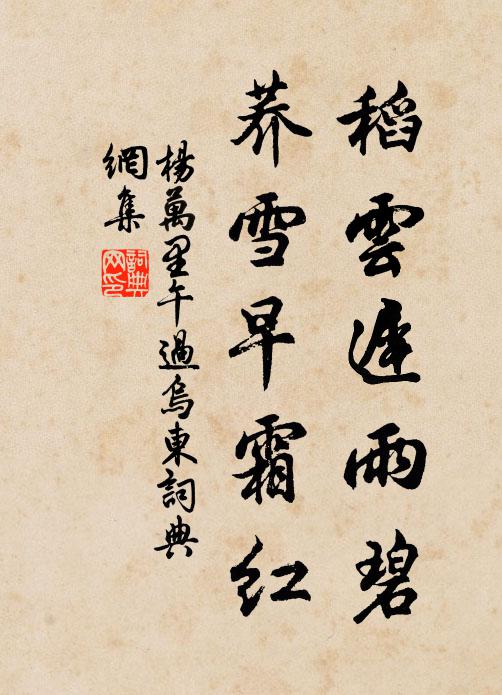 稻雲遲雨碧
荞雪早霜紅
楊萬里午過烏東詞典
網集
詞典
网印